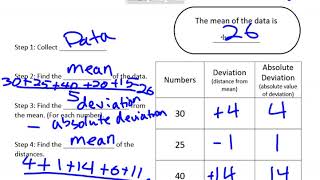 The mean of the data is
26
Step 1: Collect Data
Step 2: Find the mean of the data.
30+25+40+20+15=26
5
Step 3: Find the deviation
from the mean. (For each number)
- absolute deviation
Step 4: Find the mean of the
distances.
4+1+14+6+11
Numbers
Deviation
(distance from
mean)
Absolute
Deviation
(absolute value
of deviation)
30
+4
4
25
-1
1
40
+14
14